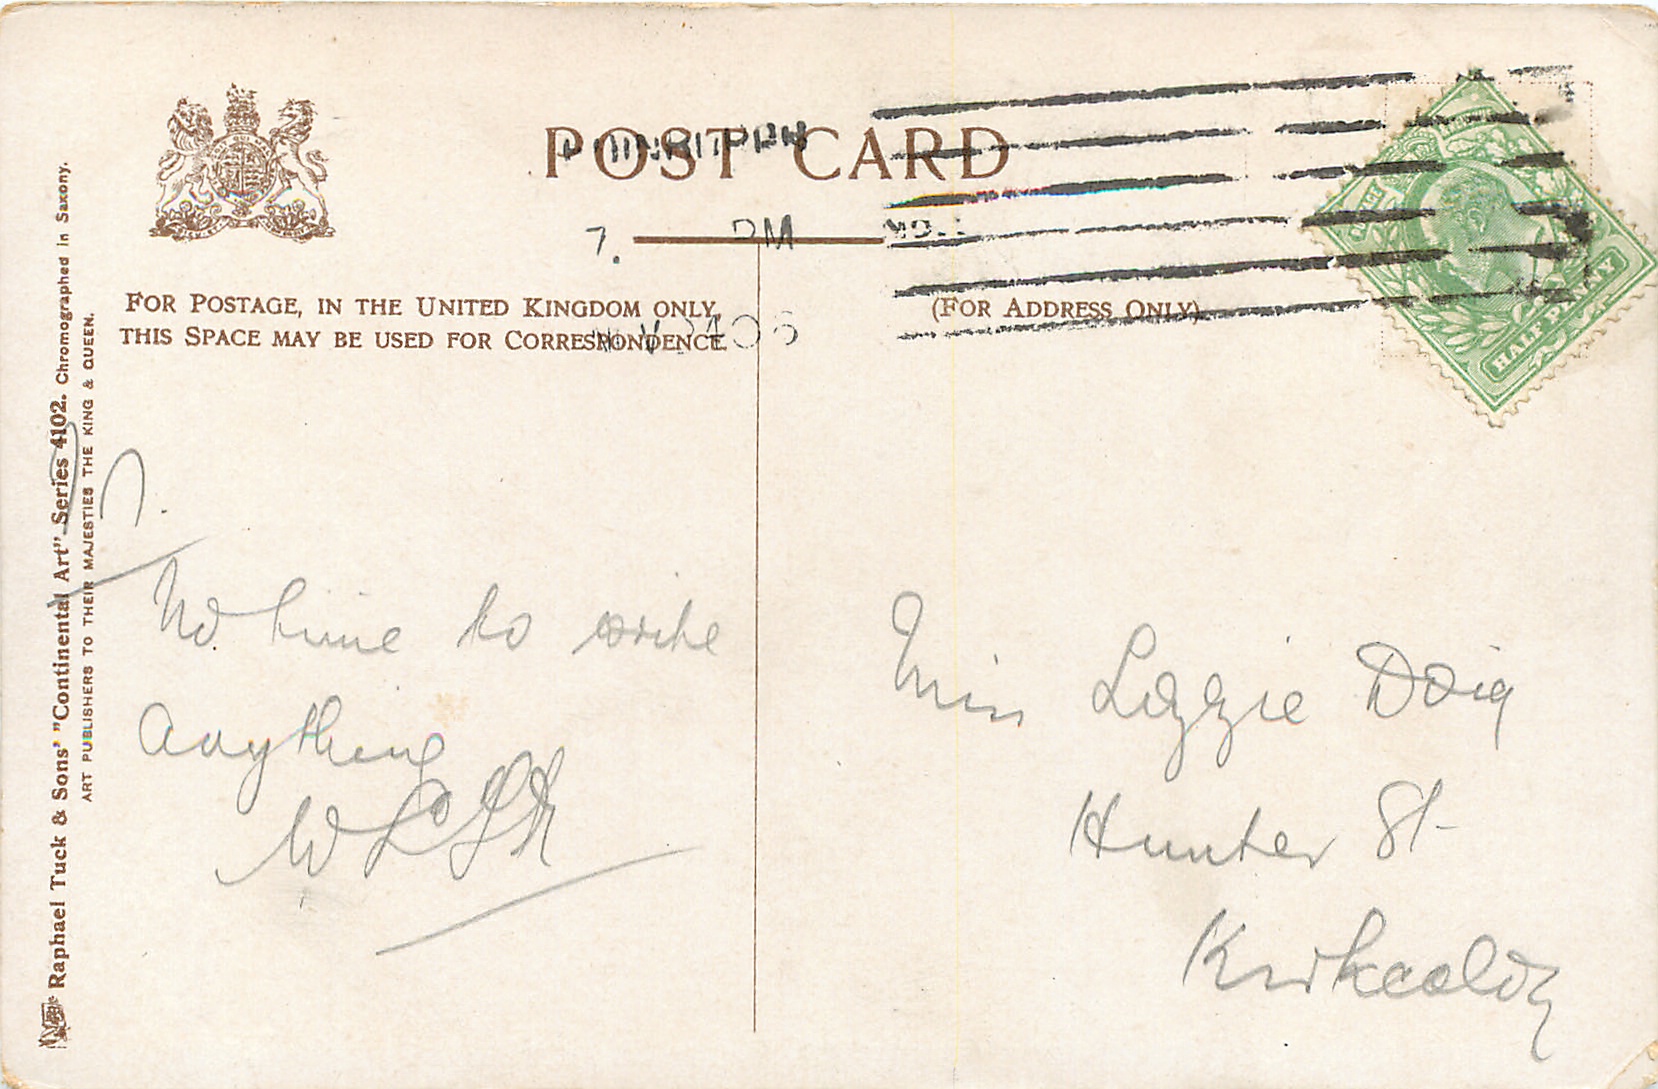 POST CARD
7. PM
FOR POSTAGE, IN THE UNITED KINGDOM ONLY,
THIS SPACE MAY BE USED FOR CORRESPONDENCE
(FOR ADDRESS ONLY)
HALF PENNY
Raphael Tuck & Sons' "Continental Art" Series 4102. Chromographed in Saxony.
ART PUBLISHERS TO THEIR MAJESTIES THE KING & QUEEN.
No time to write
anything
Miss Lizzie Doig
Hunter St
Kirkcaldy